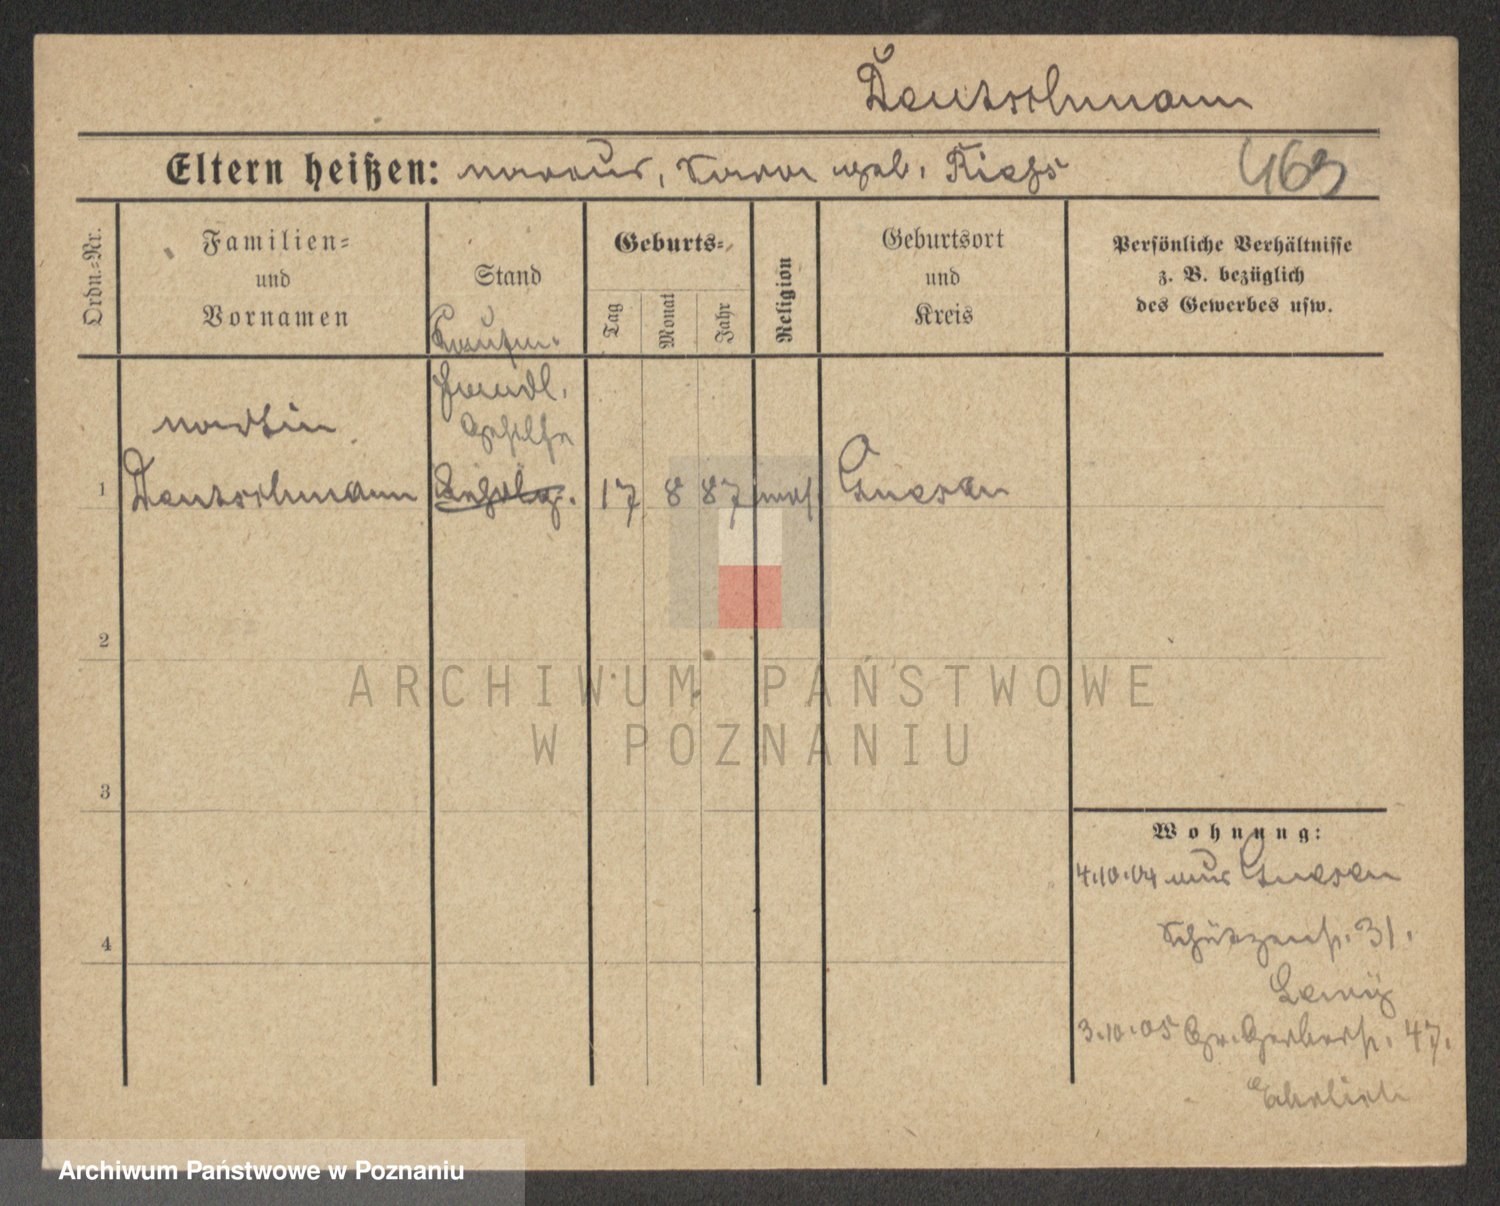 Deutschmann
Eltern heißen: Marcus, Sara geb. Rieß 463
Ordn.=Nr.
Familien=
und
Vornamen
Stand
Geburts=
Tag
Monat
Jahr
Religion
Geburtsort
und
Kreis
Persönliche Verhältnisse
z. B. bezüglich
des Gewerbes usw.
Kaufm.
Handl.
Martin
Gehilfe
1 Deutschmann 17 8 87 mos. Gnesen
2
3
4
Wohnung:
4.10.04 aus Gnesen
Schützenstr. 31.
Lewy
3.10.05 Gr. Gerberstr. 47.
Ehrlich
ARCHIWUM PAŃSTWOWE
W POZNANIU
Archiwum Państwowe w Poznaniu